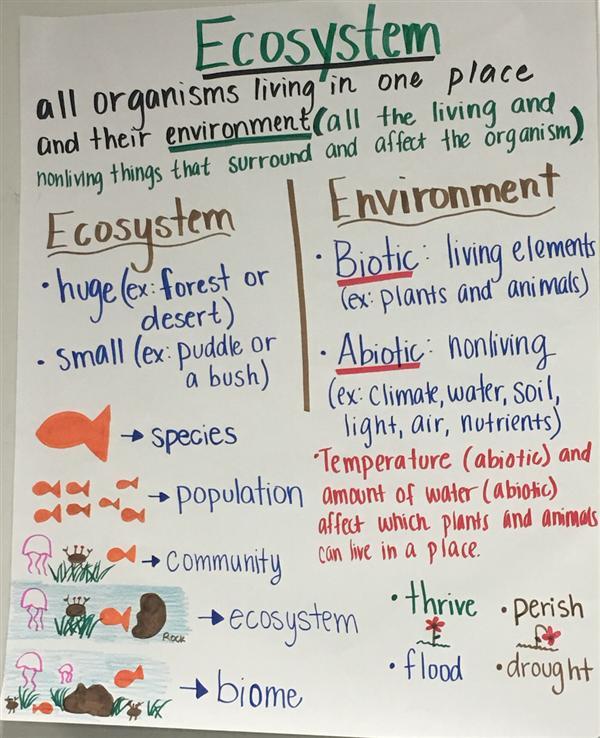 Ecosystem
all organisms living in one place
and their environment (all the living and
nonliving things that surround and affect the organism).
Ecosystem
• huge (ex: forest or
desert)
• small (ex: puddle or
a bush)
→ species
→ population
→ community
ROCK
→ ecosystem
→ biome
Environment
• Biotic: living elements
(ex: plants and animals)
• Abiotic: nonliving
(ex: climate, water, soil,
light, air, nutrients)
• Temperature (abiotic) and
amount of water (abiotic)
affect which plants and animals
can live in a place.
• thrive
• perish
• flood
• drought